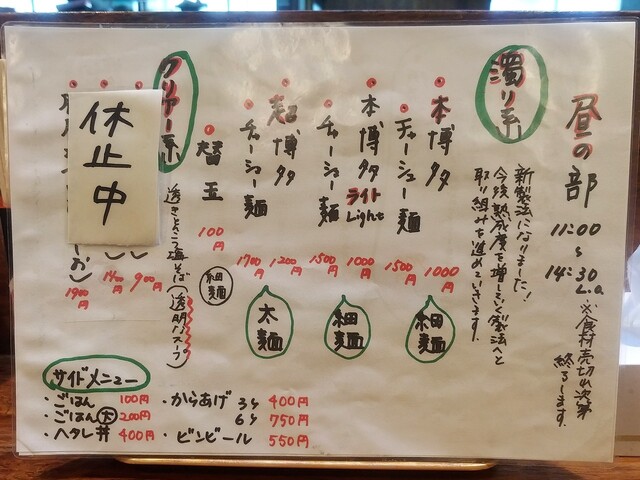 昼の部
11:00
〜
14:30
L.o
※食材売切れ次第
終ります。
濁り系
新製法になりました!
今後熟成度を増していく製法へと
取り組みを進めていきます。
・本博多
1000円
・チャーシュー麺
1500円
細麺
・本博多
ライト
Light
1000円
・チャーシュー麺
1500円
細麺
・超博多
1200円
・チャーシュー麺
1700円
太麺
・替玉
100円
細麺
クリアー系
透きとおる塩そば(透明スープ)
900円
円
1900円
休止中
サイドメニュー
・ごはん 100円
・ごはん大 200円
・ヘタレ丼 400円
・からあげ 3ケ 400円
6ケ 750円
・ビンビール 550円